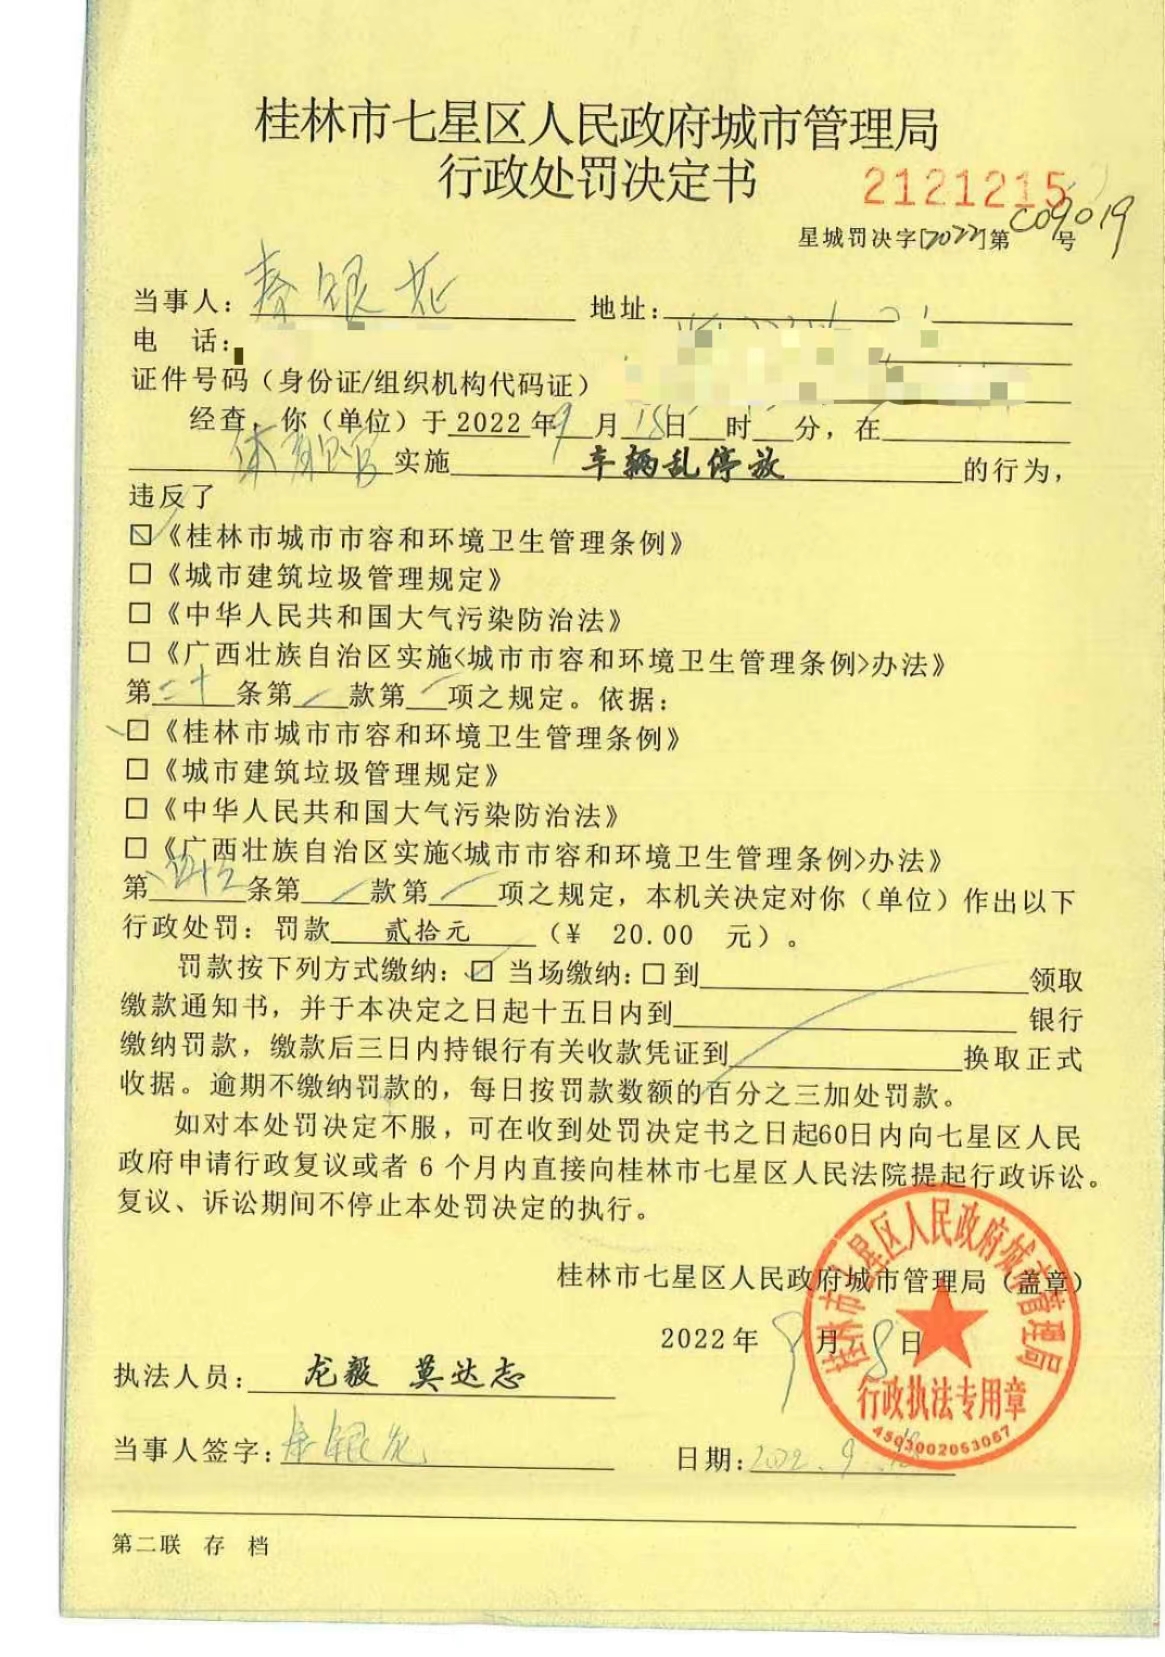 桂林市七星区人民政府城市管理局
行政处罚决定书
2121215
星城罚决字[2022]第C09019号
当事人：秦银花 地址：
电 话：
证件号码（身份证/组织机构代码证）
经查，你（单位）于2022年9月18日 时 分，在
体育馆实施车辆乱停放的行为，
违反了
☑《桂林市城市市容和环境卫生管理条例》
□《城市建筑垃圾管理规定》
□《中华人民共和国大气污染防治法》
□《广西壮族自治区实施<城市市容和环境卫生管理条例>办法》
第二十条第 款第 项之规定。依据：
☑《桂林市城市市容和环境卫生管理条例》
□《城市建筑垃圾管理规定》
□《中华人民共和国大气污染防治法》
□《广西壮族自治区实施<城市市容和环境卫生管理条例>办法》
第 条第 款第 项之规定，本机关决定对你（单位）作出以下
行政处罚：罚款 贰拾元 （¥ 20.00 元）。
罚款按下列方式缴纳：☑ 当场缴纳：□到 领取
缴款通知书，并于本决定之日起十五日内到 银行
缴纳罚款，缴款后三日内持银行有关收款凭证到 换取正式
收据。逾期不缴纳罚款的，每日按罚款数额的百分之三加处罚款。
如对本处罚决定不服，可在收到处罚决定书之日起60日内向七星区人民
政府申请行政复议或者6个月内直接向桂林市七星区人民法院提起行政诉讼。
复议、诉讼期间不停止本处罚决定的执行。
桂林市七星区人民政府城市管理局（盖章）
2022年9月18日
桂林市七星区人民政府城市管理局
行政执法专用章
4503002053067
执法人员：龙毅 莫达志
当事人签字：秦银花 日期：2022.9.18
第二联 存 档